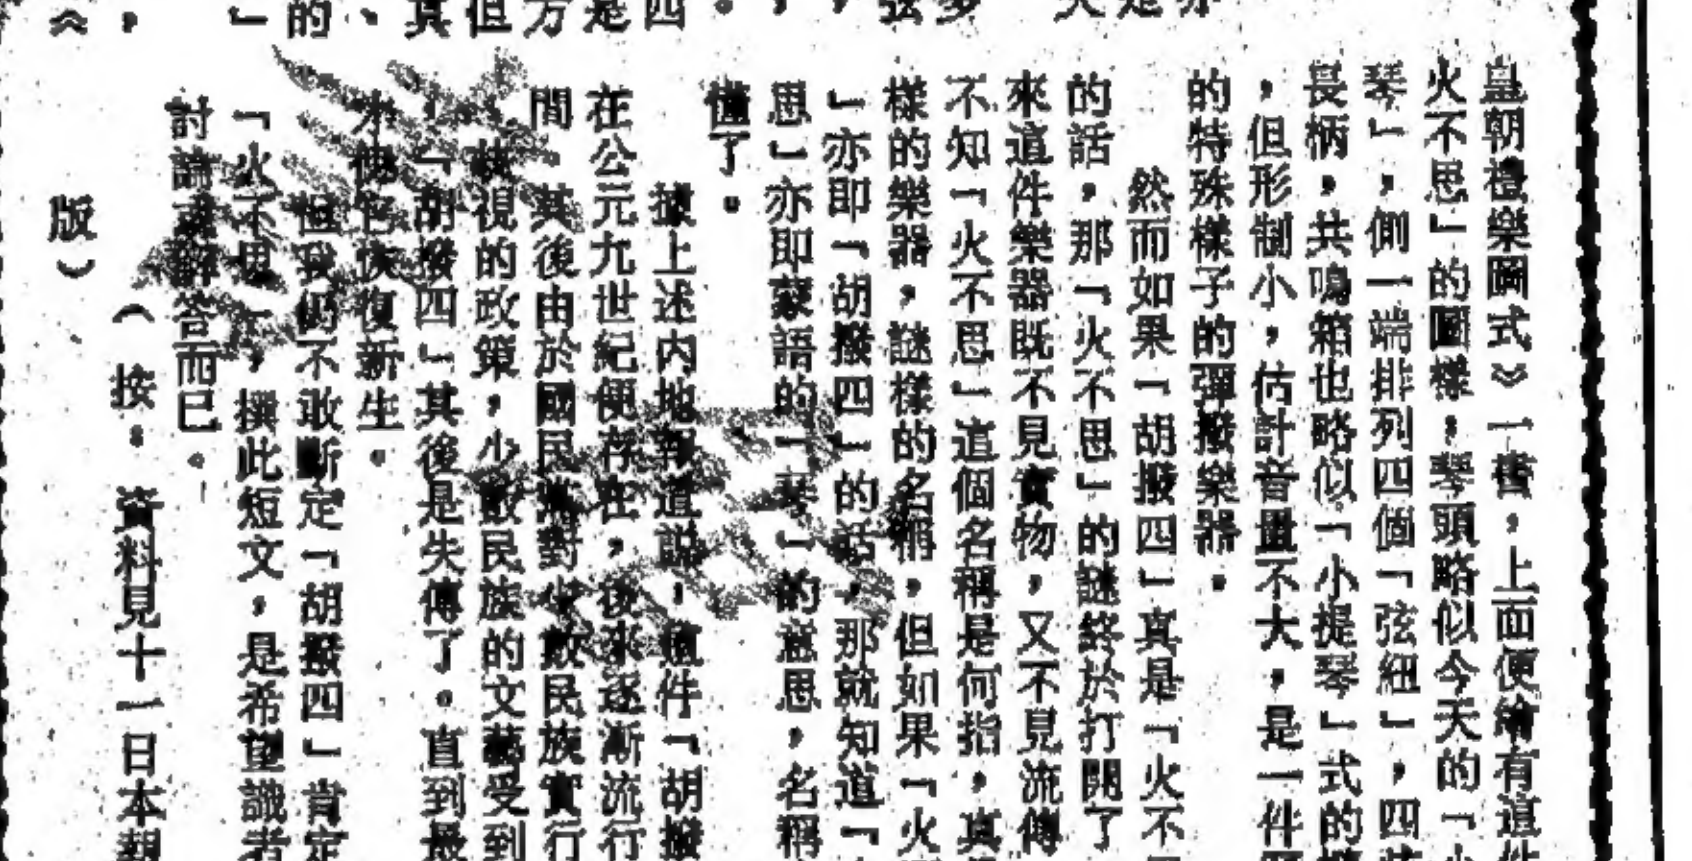 皇朝禮樂圖式》一書，上面便繪有這件
火不思」的圖樣，琴頭略似今天的「小
琴」，側一端排列四個「弦紐」，四
長柄，共鳴箱也略似「小提琴」式的
，但形制小，估計音量不大，是一件
的特殊樣子的彈撥樂器。
然而如果「胡撥四」真是「火不
的話，那「火不思」的謎終於打開了
來這件樂器既不見實物，又不見流傳
不知「火不思」這個名稱是何指，真
樣的樂器，謎樣的名稱，但如果「火
」亦即「胡撥四」的話，那就知道「
思」亦即蒙語的「琴」的意思，名稱
懂了。
據上述內地報道說，這件「胡撥
在公元九世紀便存在，後來逐漸流行
間，其後由於國民黨對少數民族實行
歧視的政策，少數民族的文藝受到
，「胡撥四」其後是失傳了。直到最
才使它恢復新生。
但我仍不敢斷定「胡撥四」肯定
「火不思」，撰此短文，是希望識者
討論或解答而已。
（按：資料見十一日本報
版）